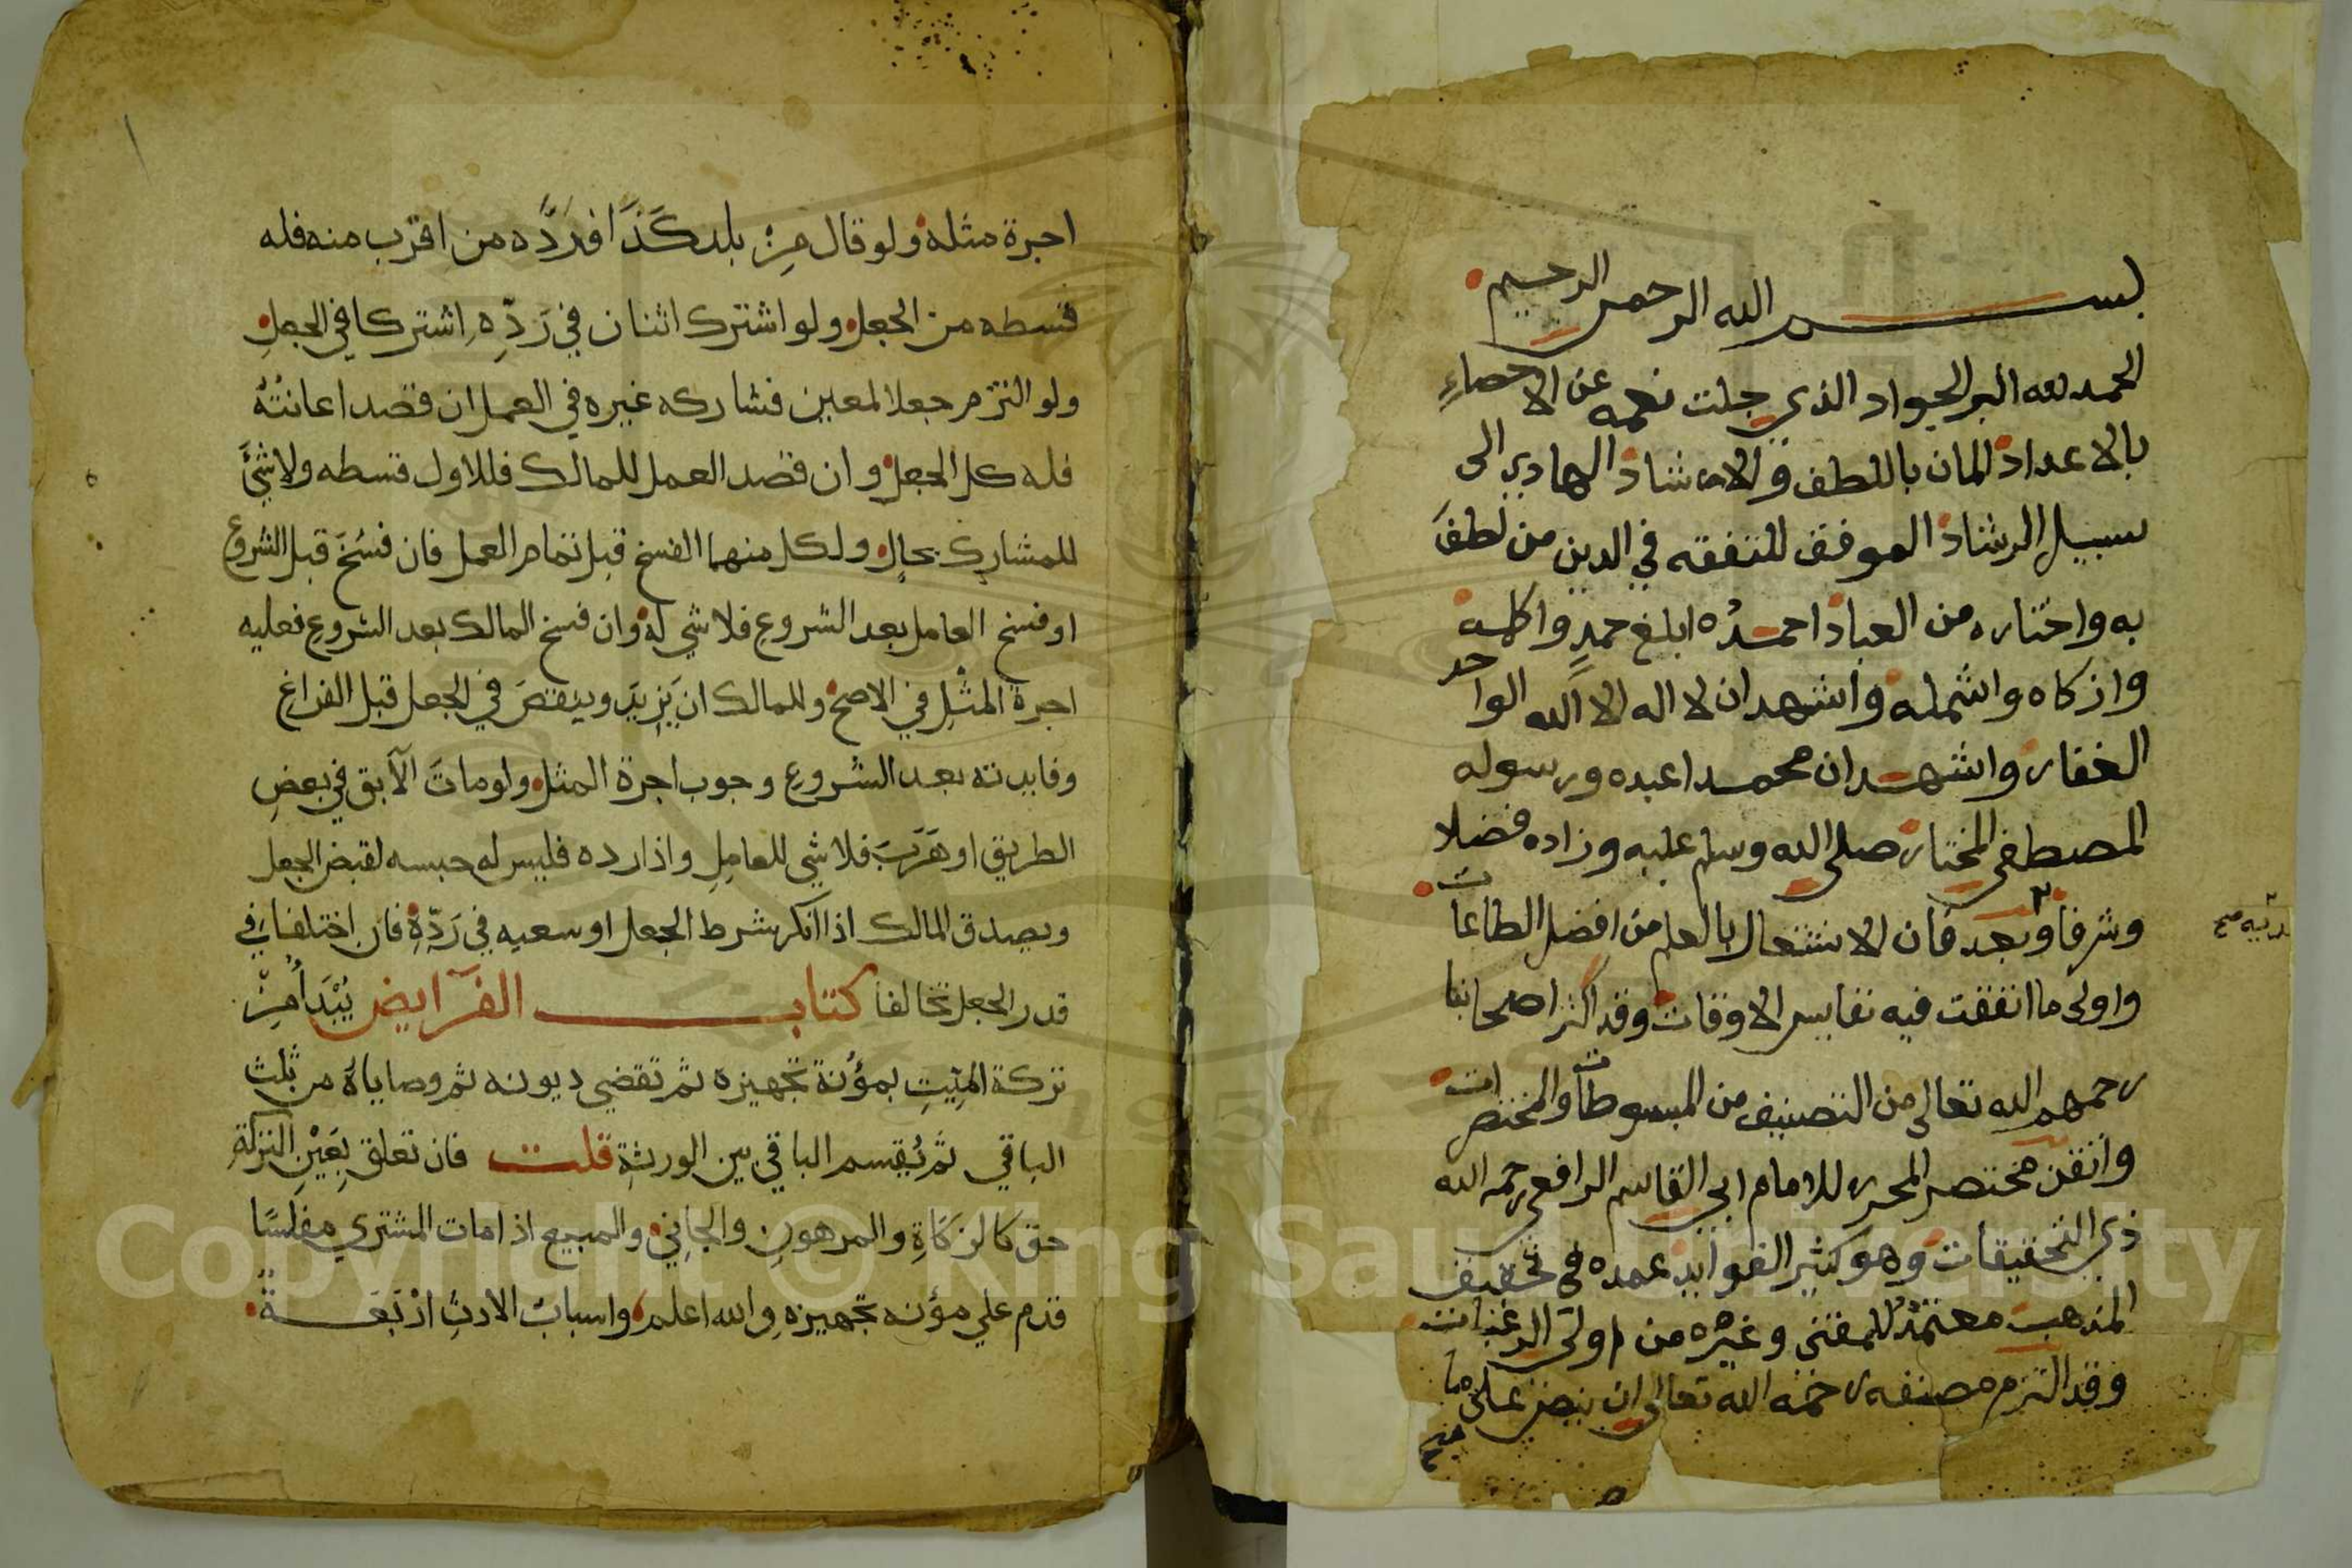 بسم الله الرحمن الرحيم
الحمد لله البر الجواد الذي جلت نعمه عن الاحصاء
بالاعداد المان باللطف والارشاد الهادي الى
سبيل الرشاد الموفق للتفقه في الدين من لطف
به واختاره من العباد احمده ابلغ حمد واكمله
وازكاه واشمله واشهد ان لا اله الا الله الواحد
الغفار واشهد ان محمدا عبده ورسوله
المصطفى المختار صلى الله وسلم عليه وزاده فضلا
وشرفا وبعد فان الاشتغال بالعلم من افضل الطاعات
واولى ما انفقت فيه نفايس الاوقات وقد اكثر اصحابنا
رحمهم الله تعالى من التصنيف من المبسوطات والمختصرات
واتقن مختصر المحرر للامام ابي القاسم الرافعي رحمه الله
ذي التحقيقات وهو كثير الفوايد عمده في تحقيق
المذهب معتمد للمفتي وغيره من اولي الرغبات
وقد التزم مصنفه رحمه الله تعالى ان ينص على ما
اجرة مثله ولو قال مِن بلد كَذَا فردَّه من اقرب منه فله
قسطه من الجعل ولو اشترك اثنان في رَدِّهِ اشتركا في الجعلِ
ولو التزم جعلا لمعين فشاركه غيره في العمل ان قصد اعانتُهُ
فله كل الجعل وان قصد العمل للمالك فللاول قسطه ولا شئَ
للمشاركِ بحالٍ ولكل منهما الفسخ قبل تمام العمل فان فُسَخَ قبل الشروع
او فسخ العامل بعد الشروع فلا شي له وان فسخ المالك بعد الشروع فعليه
اجرة المثْلِ في الاصح وللمالك ان يَزِيدَ وينقصَ في الجعل قبل الفراغِ
وفايدته بعد الشروعِ وجوب اجرة المثل ولو ماتَ الآبق في بعضِ
الطريق او هَرَبَ فلا شي للعامِلِ واذا رده فليس له حبسه لقبض الجعل
ويصدق المالك اذا انكر شرط الجعل او سعيه في رَدِّهِ فان اختلفا في
قدر الجعل تحالفا كتاب الفرَايض يُبْدَأُ مِنْ
تركة الميّتِ بمؤُنة تجهيزه ثم تقضي ديونه ثم وصاياهُ من ثلث
الباقي ثم يُقسم الباقي بين الورثةِ قلت فان تعلق بِعَيْنِ التركةِ
حق كالزكاةِ والمرهونِ والجاني والمبيع اذا مات المشتري مفلسًا
قدم علي مؤنه تجهيزهِ والله اعلم واسبابُ الارثِ ارْبَعَةٌ
Copyright © King Saud University
1957